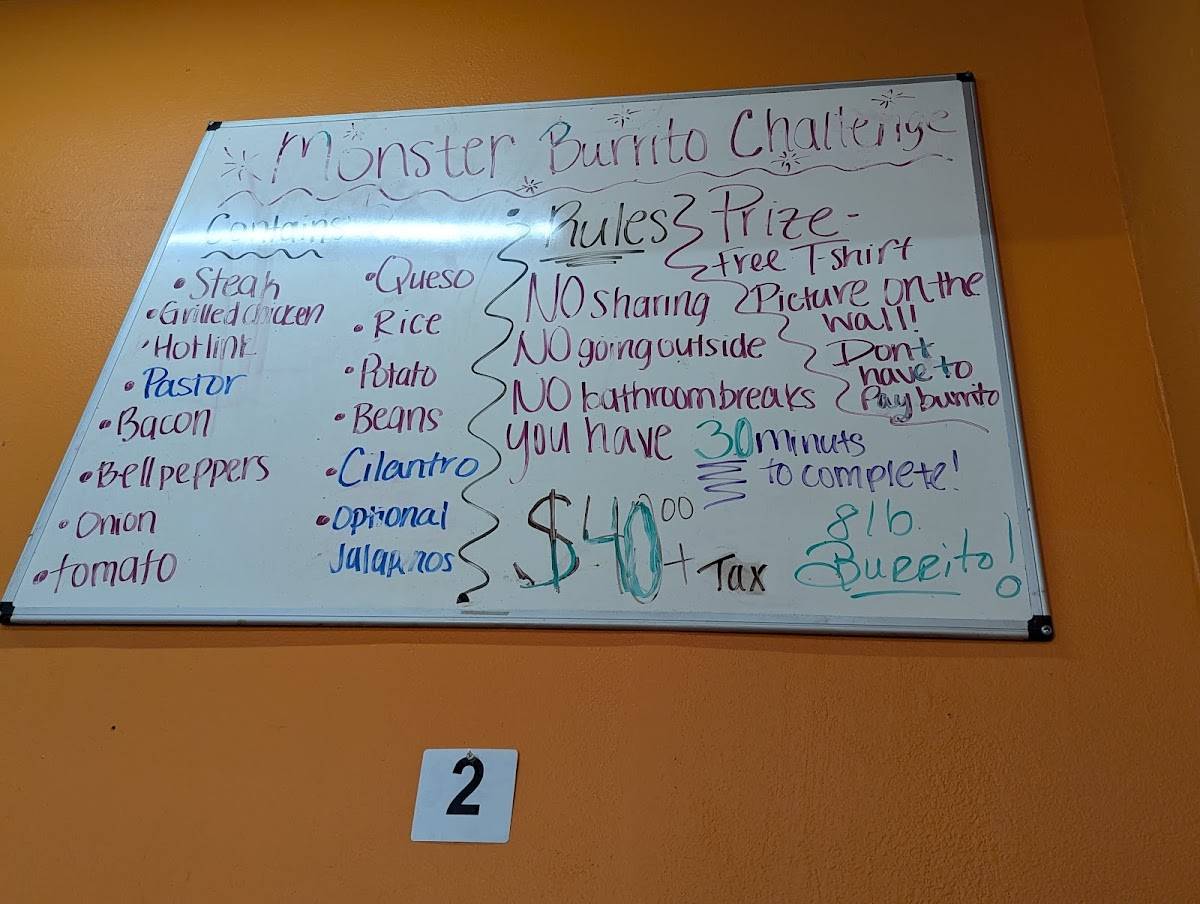 Monster Burrito Challenge
Contains
• Steak
• Grilled chicken
• Hotlink
• Pastor
• Bacon
• Bell peppers
• Onion
• tomato
• Queso
• Rice
• Potato
• Beans
• Cilantro
• Optional
Jalapnos
Rules
NO sharing
NO going outside
NO bathroom breaks
you have 30 minuts
to complete!
$40.00 + Tax
Prize -
free T-shirt
Picture on the
wall!
Don't
have to
Pay burrito
8lb
Burrito!
2